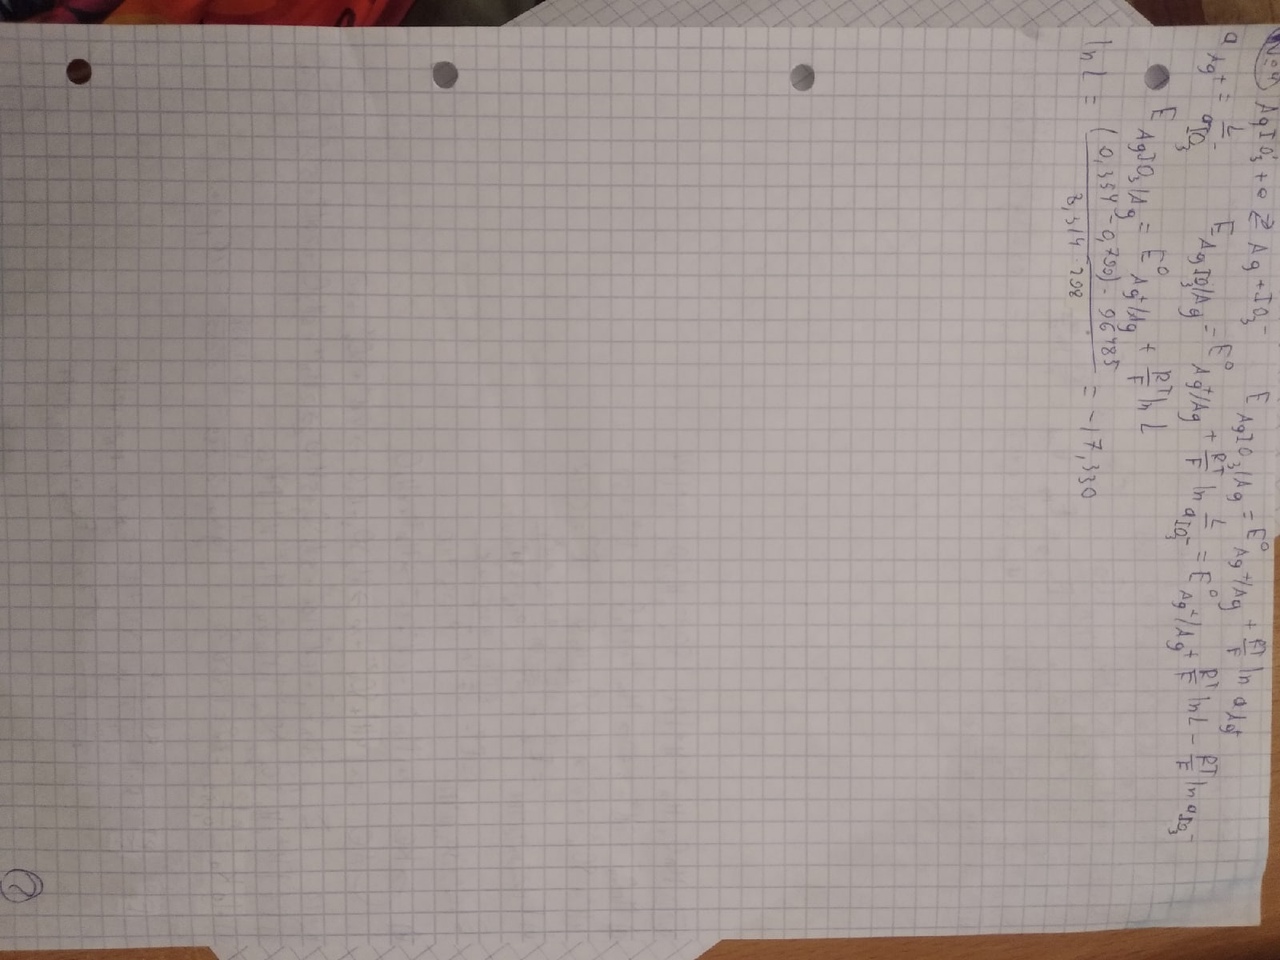 №4 AgIO₃ + e ⇄ Ag + IO₃⁻ E AgIO₃/Ag = E⁰ Ag⁺/Ag + RT/F ln a Ag⁺
a Ag⁺ = L/a IO₃⁻ E AgIO₃/Ag = E⁰ Ag⁺/Ag + RT/F ln L/a IO₃⁻ = E⁰ Ag⁺/Ag + RT/F ln L - RT/F ln a IO₃⁻
E AgIO₃/Ag = E⁰ Ag⁺/Ag + RT/F ln L
ln L = (0,354 - 0,799) · 96485 / 8,314 · 298 = -17,330
2